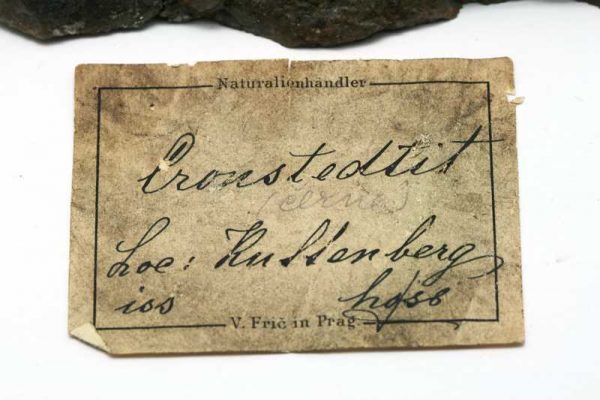 Naturalienhändler
Cronstedtit
(černá)
Loc: Kuttenberg
iss
V. Frič in Prag.